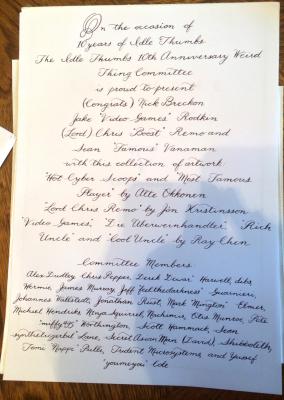 On the occasion of
10 years of Idle Thumbs
The Idle Thumbs 10th Anniversary Weird
Thing Committee
is proud to present
(Congrats) Nick Breckon
Jake "Video Games" Rodkin
(Lord) Chris "Boost" Remo and
Sean "Famous" Vanaman
with this collection of artwork:
"Hot Cyber Scoops" and "Most Famous
Player" by Atte Okkonen
"Lord Chris Remo" by Jón Kristinsson
"Video Games," "Die Überwernhandler," "Rich
Uncle" and "Cool Uncle" by Ray Chen
Committee Members
Alex Dudley, Chris Pepper, Derek "Dewar" Harwell, debs,
Hormic, James Murray, Jeff "feelthedarkness" Guarnieri,
Johannes Wallstedt, Jonathan Rust, Mark "Mington" Elmer,
Michael Hendriks, Neya Squirrel, Nachimir, Otis Munroe, Pete
"miffy495" Worthington, Scott Hammack, Sean
"syntheticgerbil" Lane, Secret Asian Man (David), Shibboleth,
Tomi "Nappi" Pulli, Trident Microsystems, and Youssef
"youmeyou" Cole